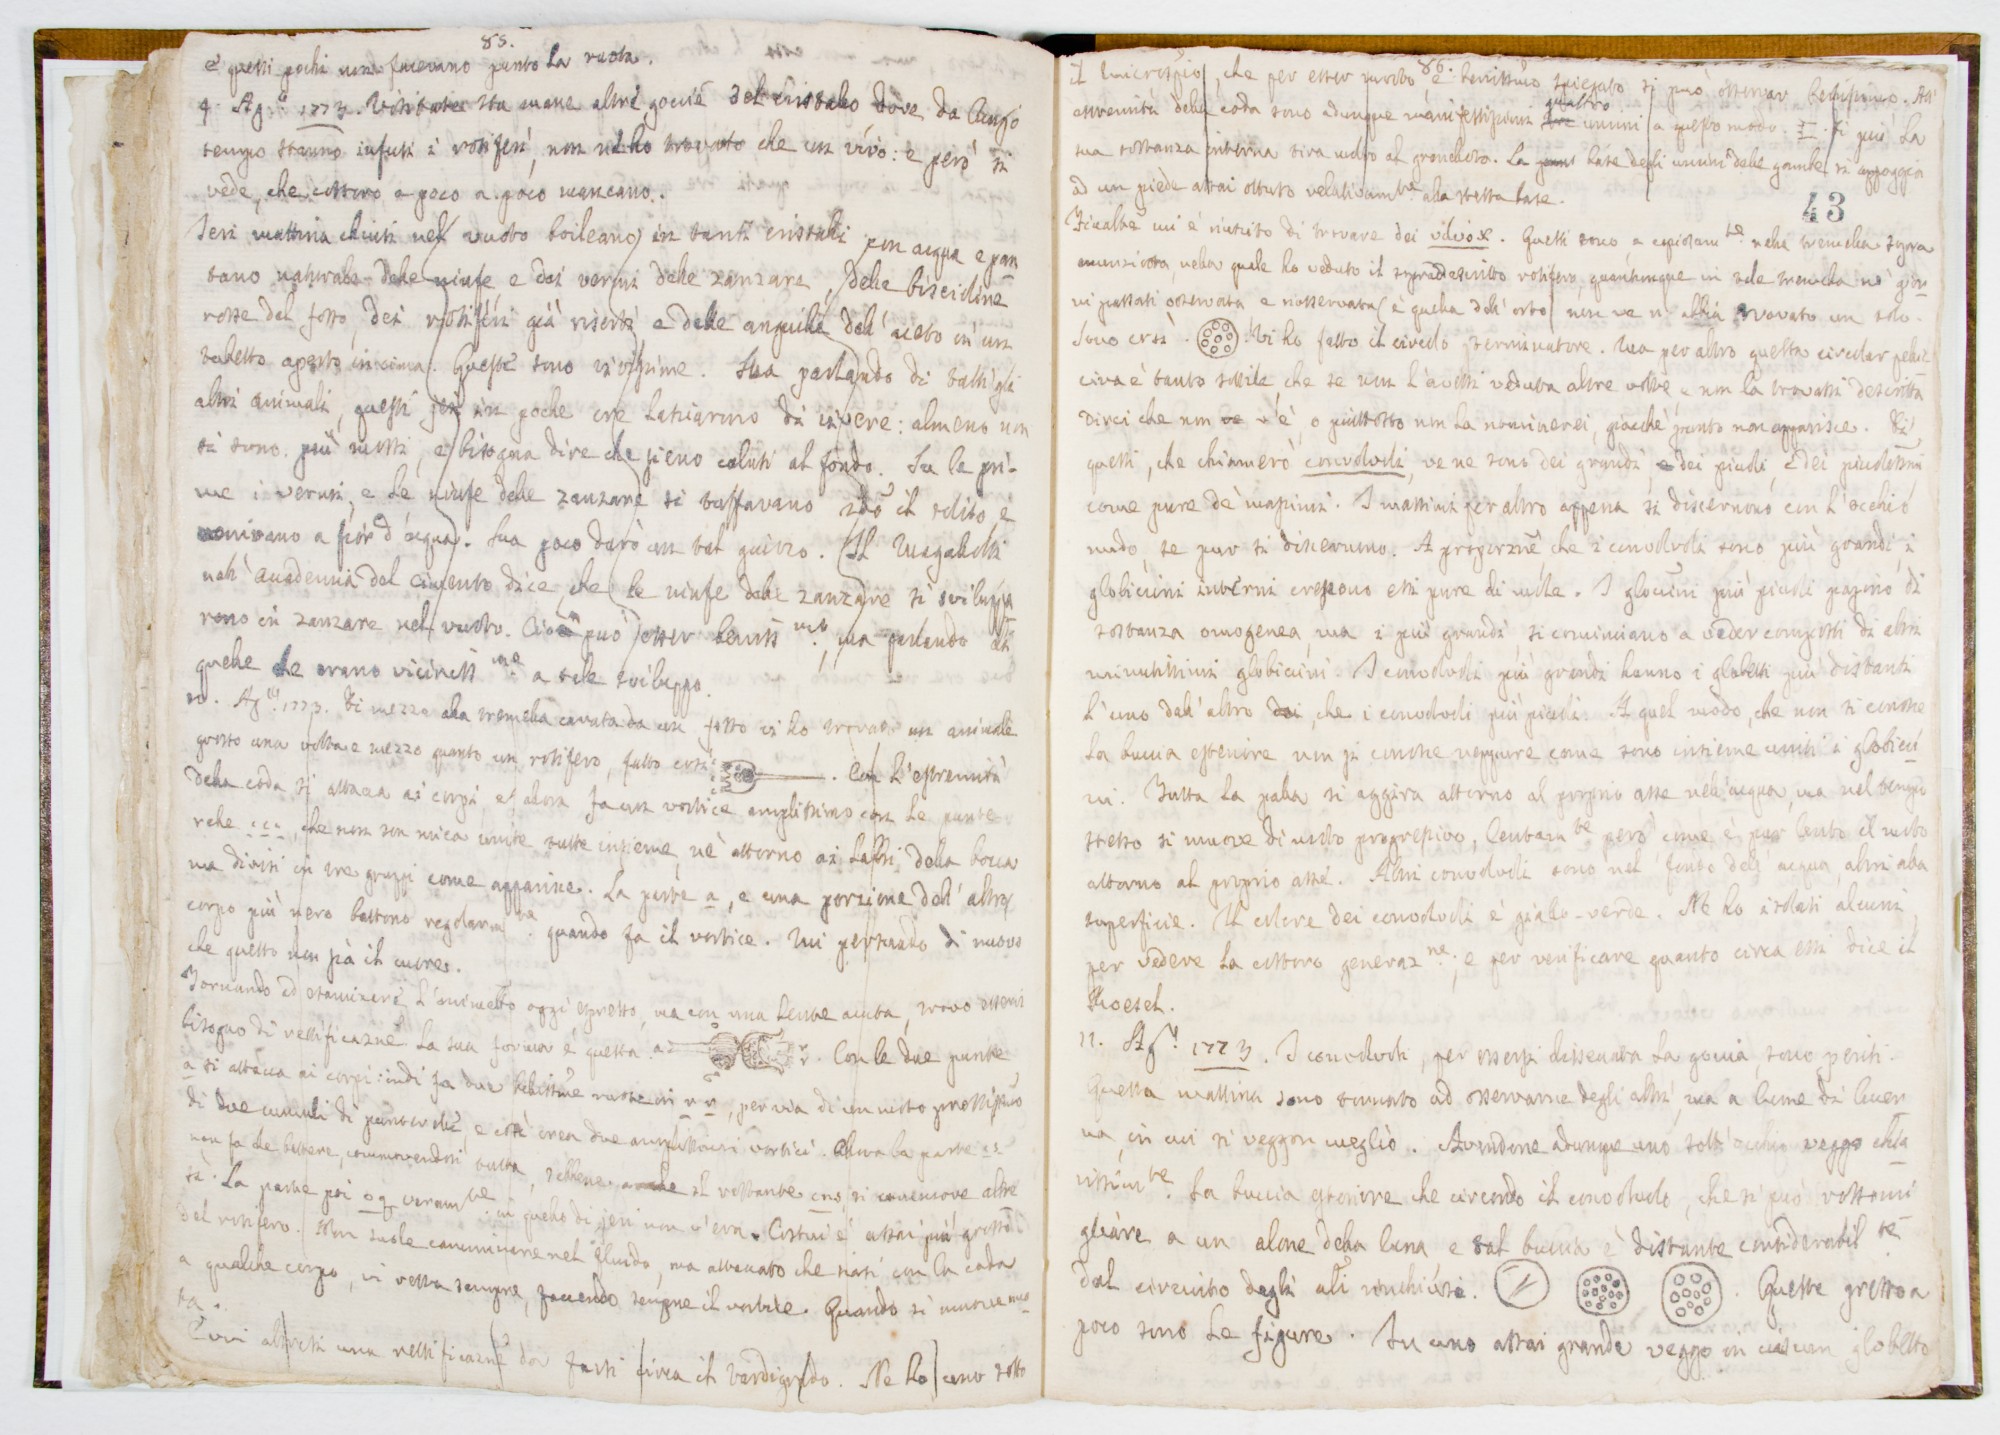 85.
e questi pochi non facevano punto la ruota.
9. Ag.to 1773. Visitate sta mane altre gocie del cristallo dove da lungo
tempo stanno infusi i rotiferi, non vi ho trovato che un vivo: e però si
vede, che costoro a poco a poco mancano.
Jeri mattina chiusi nel vuoto boileano in tanti cristalli con acqua e pan
tano naturale delle ninfe e dei vermi delle zanzare, delle biscioline
rosse del fosso, dei rotiferi già risorti e delle anguille dell'aceto in un
tubetto aperto in cima. Queste sono vivissime. Ma parlando di tutti gli
altri animali, questi jeri in poche ore lasciarono di vivere: almeno non
si sono più mossi, e bisogna dire che sieno calati al fondo. Su le pri-
me i vermi, e le ninfe delle zanzare si tuffavano sdo il solito, e
venivano a fior d'acqua. Ma poco durò un tal guizzo. Il Magalotti
nell'Accademia del cimento dice che le ninfe delle zanzare si svilup
rono in zanzare nel vuoto. Ciò può esser beniss.mo, ma parlando di
quelle che erano vicinissme a tale sviluppo.
10. Ag.to 1773. In mezzo alla tremella cavata da un fosso vi ho trovato un animale
grosso una volta e mezzo quanto un rotifero, fatto così . Con l'estremità
della coda si attacca ai corpi, e allora fa un vortice amplissimo con le punte
relle ccc, che non son mica unite tutte insieme, nè attorno ai labbri della bocca
ma divisi in tre gruppi come apparisce. La parte a, e una porzione dell'altro
corpo più nero battono regolarmte quando fa il vortice. Mi persuado di nuovo
che questo non sia il cuore.
Tornando ad esaminare l'animaletto oggi espresso, ma con una lente acuta, trovo esservi
bisogno di rettificazne. La sua forma è questa a . Con le due punte
a si attacca ai corpi: indi fa due bellissime ruote in r r, per via di un moto prestissimo
di due cumuli di punterelle, e così crea due amplissimi vortici. Allora la parte
non fa che battere, commovendosi tutta, sebbene anche il restante si commove altre
sì. La parte poi o q veramte in quello di jeri non v'era. Costui è assai più grosso
del rotifero. Non suole camminare nel fluido, ma attaccato che siasi con la coda
a qualche corpo, vi resta sempre, facendo sempre il vortice. Quando si muove nuo
ta.
Evvi altresì una rettificazne da farsi circa il tardigrado. Ne ho uno sotto
86.
43
il microscpio, che per esser morto, e benissimo spiegato si può osservar benissimo. All'
estremità della coda sono adunque manifestissimi tre quattro uncini a questo modo. Di più la
sua sostanza interna tira molto al granelloso. La base degli uncini delle gambe si appoggia
ad un piede assai ottuso relativamte alla stessa base.
Finalmte mi è riuscito di trovare dei volvox. Questi sono a copiosam.te nella tremella sopra
enunziata, nella quale ho veduto il sopradescritto rotifero, quantunque in tale tremella ne' gior
ni passati osservata e riosservata (è quella dell'orto) non ve n' abbia trovato un solo.
Sono così . Vi ho fatto il circolo terminatore. Ma per altro questa circolar pelli
cina è tanto sottile che se non l'avessi veduta altre volte, e non la trovassi descritta
direi che non ve v'è, o piuttosto non la nominerei, giacchè punto non apparisce. Di
questi, che chiamerò convolvoli, ve ne sono dei grandi, e dei piccoli, e dei picolissimi
come pure de' massimi. I massimi per altro appena si discernono con l'occhio
nudo, se pur si discernono. A proporzne che i convolvoli sono più grandi, i
globicini interni crescono essi pure di mole. I globicini più piccoli pajono di
sostanza omogenea, ma i più grandi, si cominciano a veder composti di altri
minutissimi globicini. I convolvoli più grandi hanno i globetti più distanti
l'uno dall'altro dai, che i convolvoli più piccoli. A quel modo, che non si conosce
la buccia esteriore non si conosce neppure come sono insieme uniti i globici
ni. Tutta la palla si aggira attorno al proprio asse nell'acqua, ma nel tempo
stesso si muove di moto progressivo, lentamte però come è pur lento il moto
attorno al proprio asse. Altri convolvoli sono nel fondo dell'acqua, altri alla
superficie. Il colore dei convolvoli è giallo-verde. Ne ho isolati alcuni,
per vedere la costoro generazne, e per verificare quanto circa essi dice il
Roesel.
11. Ag.to 1773. I convolvoli, per essersi disseccata la goccia, sono periti.
Questa mattina sono tornato ad osservarne degli altri, ma a lume di lucer
na, in cui si veggon meglio. Avendone adunque uno sott'occhio veggo chia
rissimte la buccia esteriore che circonda il convolvolo, che si può rassomi
gliare a un alone della luna e tal buccia è distante considerabilte
dal circuito degli altri rinchiusi. . Queste presso a
poco sono le figure. In uno assai grande veggo in ciascun globetto